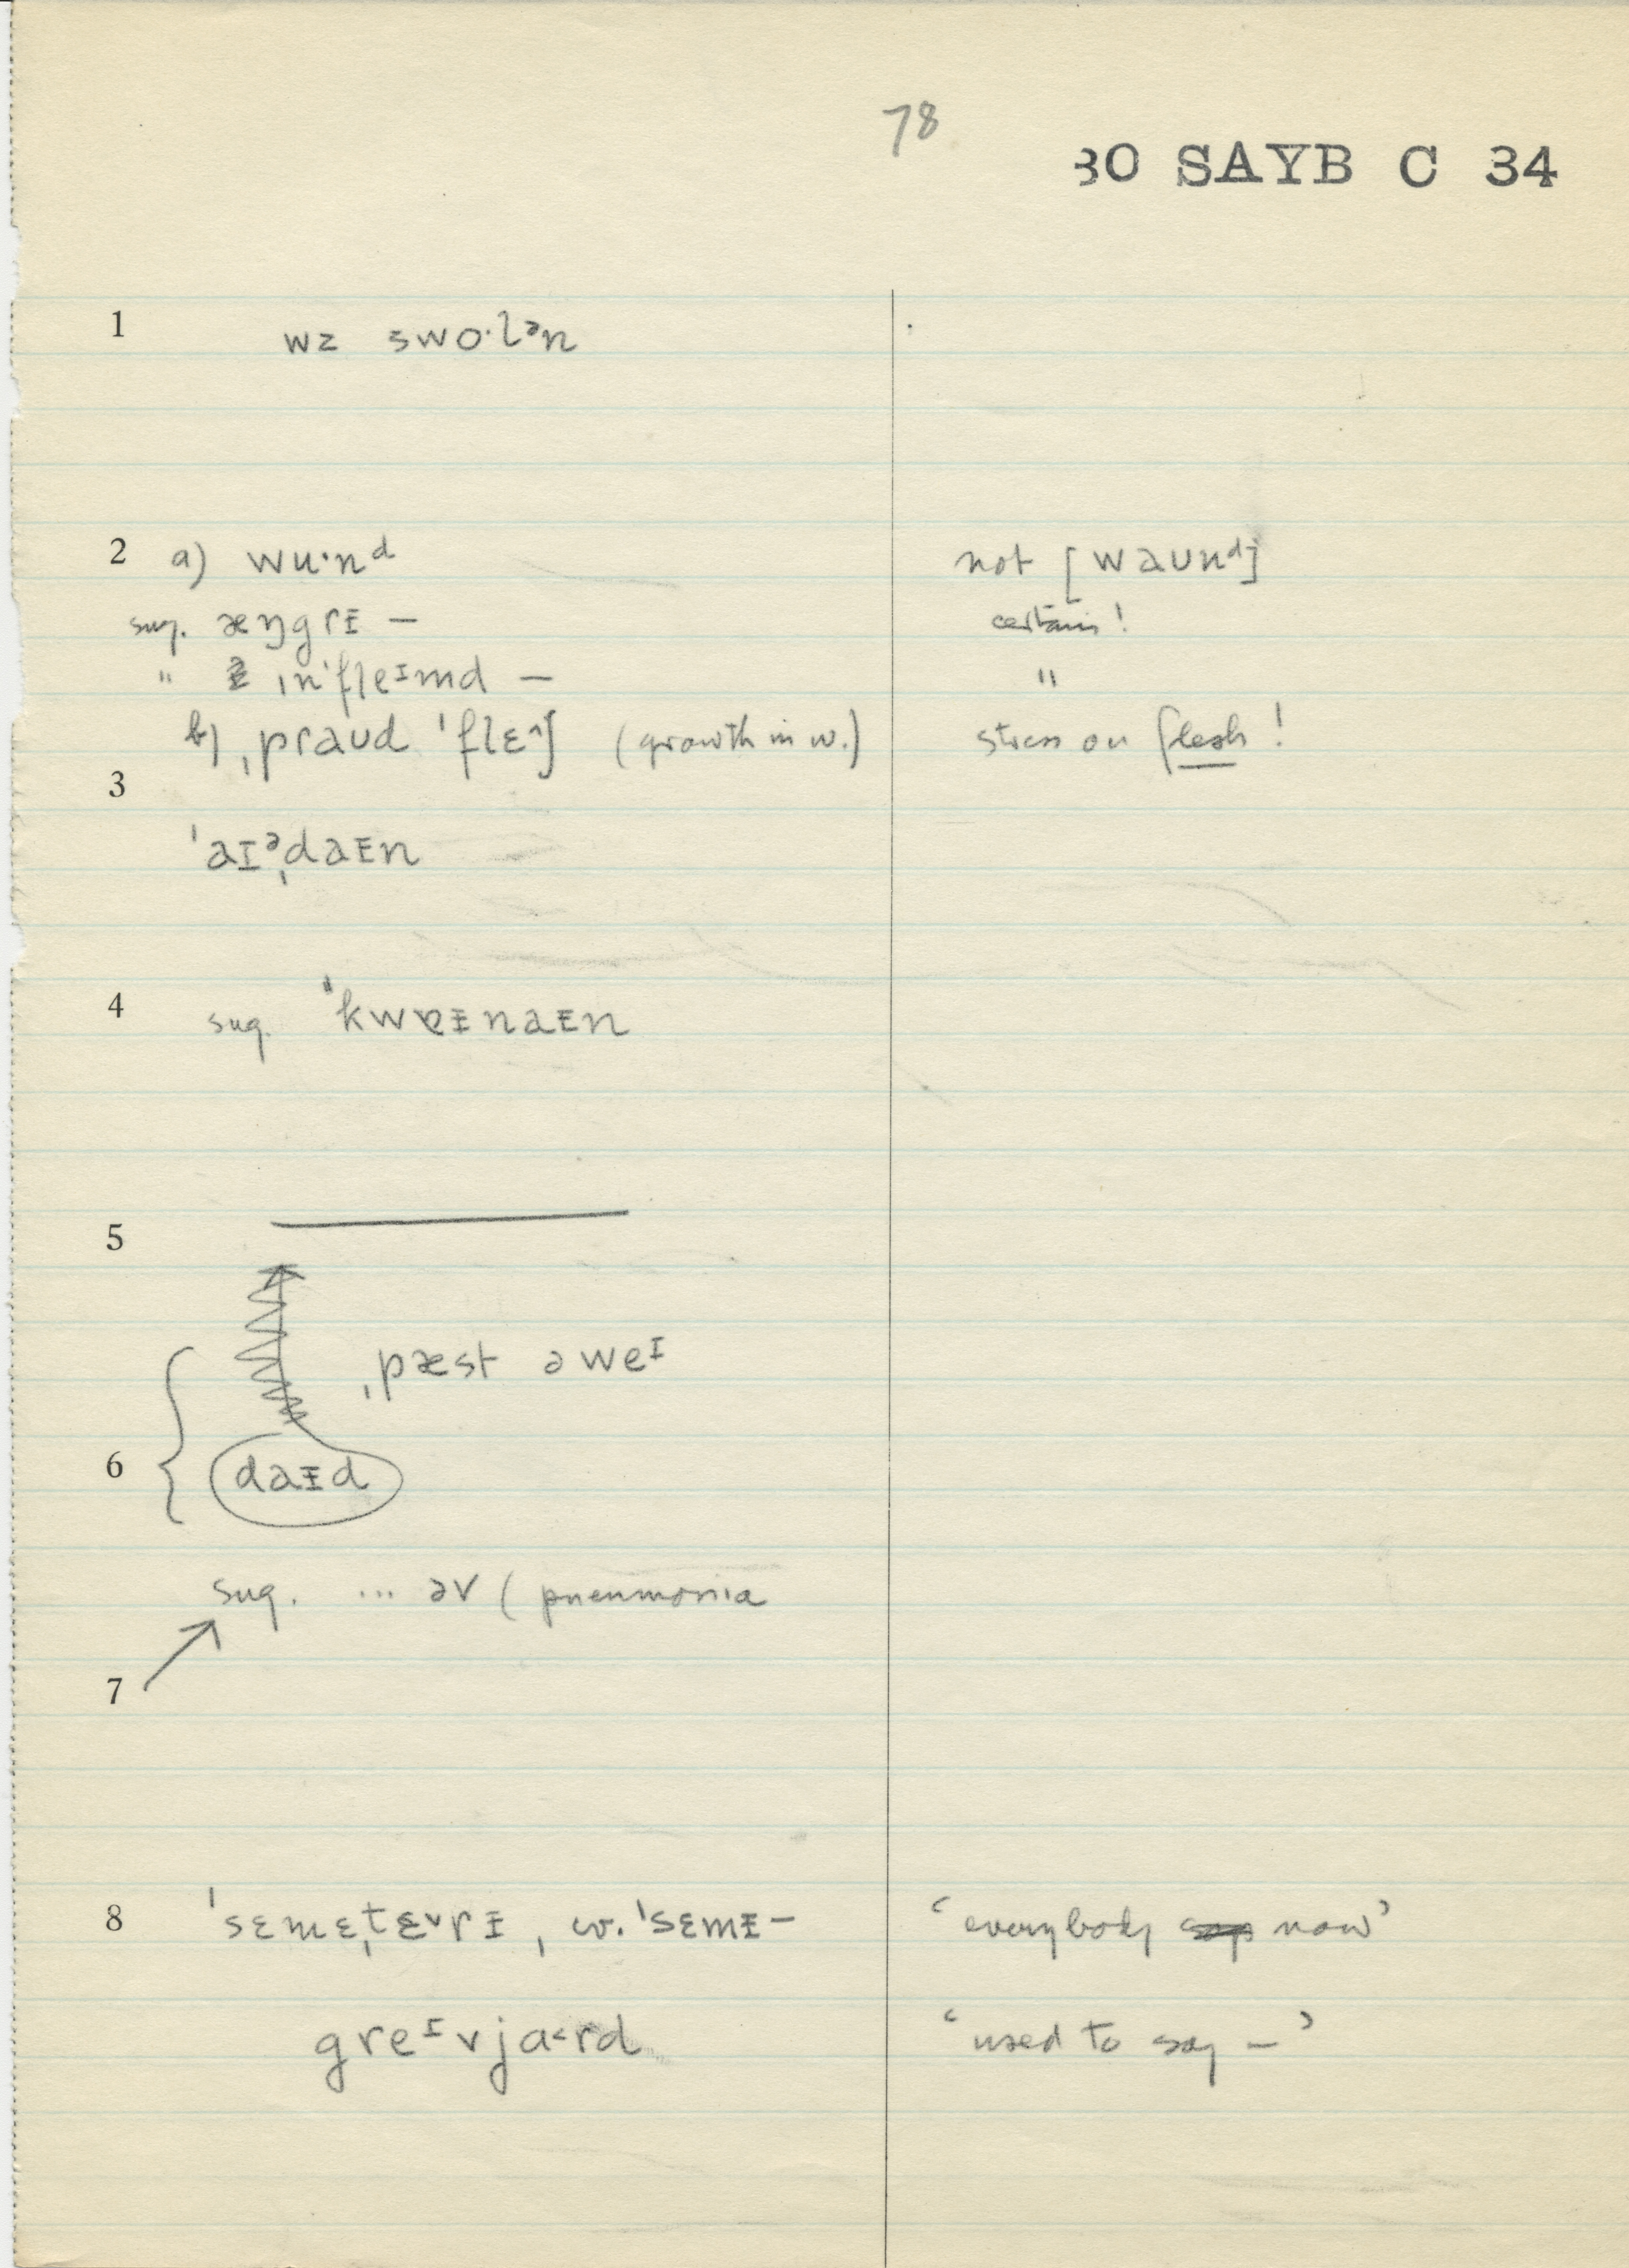 78
30 SAYB C 34
1 wz swo·lᵊn
2 a) wu·nᵈ not [waunᵈ]
sug. æŋgrɪ̵ — certain!
" in'fleᴵmd — "
b) ˌpraud 'flɛ^ʃ (growth in w.) stress on flesh!
3
'aɪᵊˌdaɪ̵n
4 sug. "kwɐɪ̵naɪ̵n
5
ˌpæst əweᴵ
6 daɪ̵d
sug. ... əv (pneumonia
7
8 'sɛmɛˌtɛᵛrɪ̵, w. 'sɛmɪ̵— 'everybody now'
greᴵvja<rd 'used to say —'